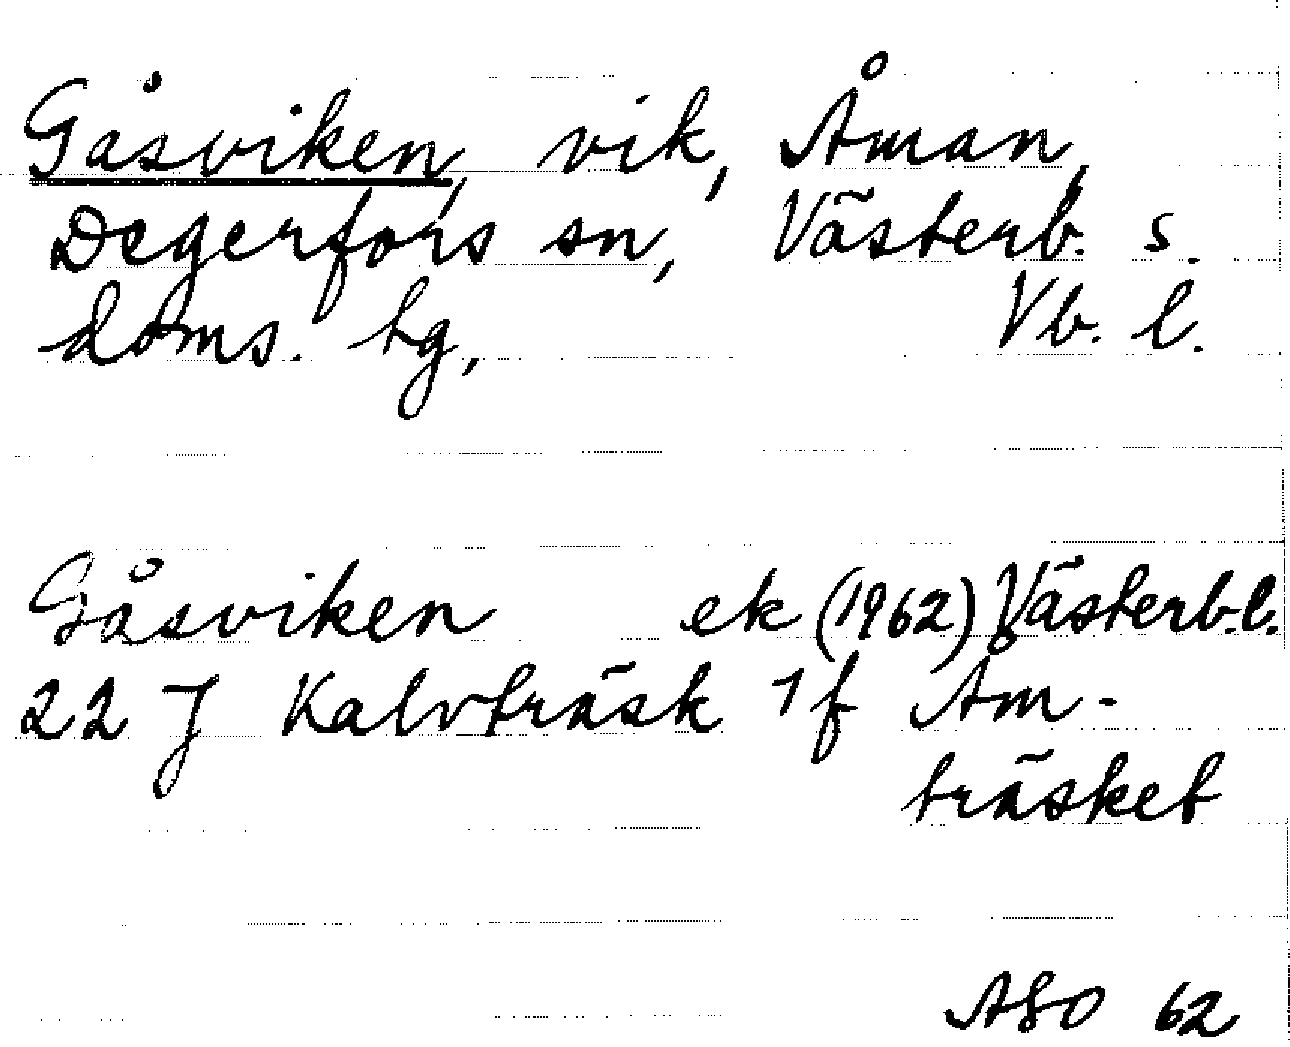 Gåsviken, vik, Åman,
Degerfors sn, Västerb. s.
doms. tg, Vb. l.
Gåsviken ek (1962) Västerb.l.
22 J Kalvträsk 1 f Åm-
träsket
ASO 62